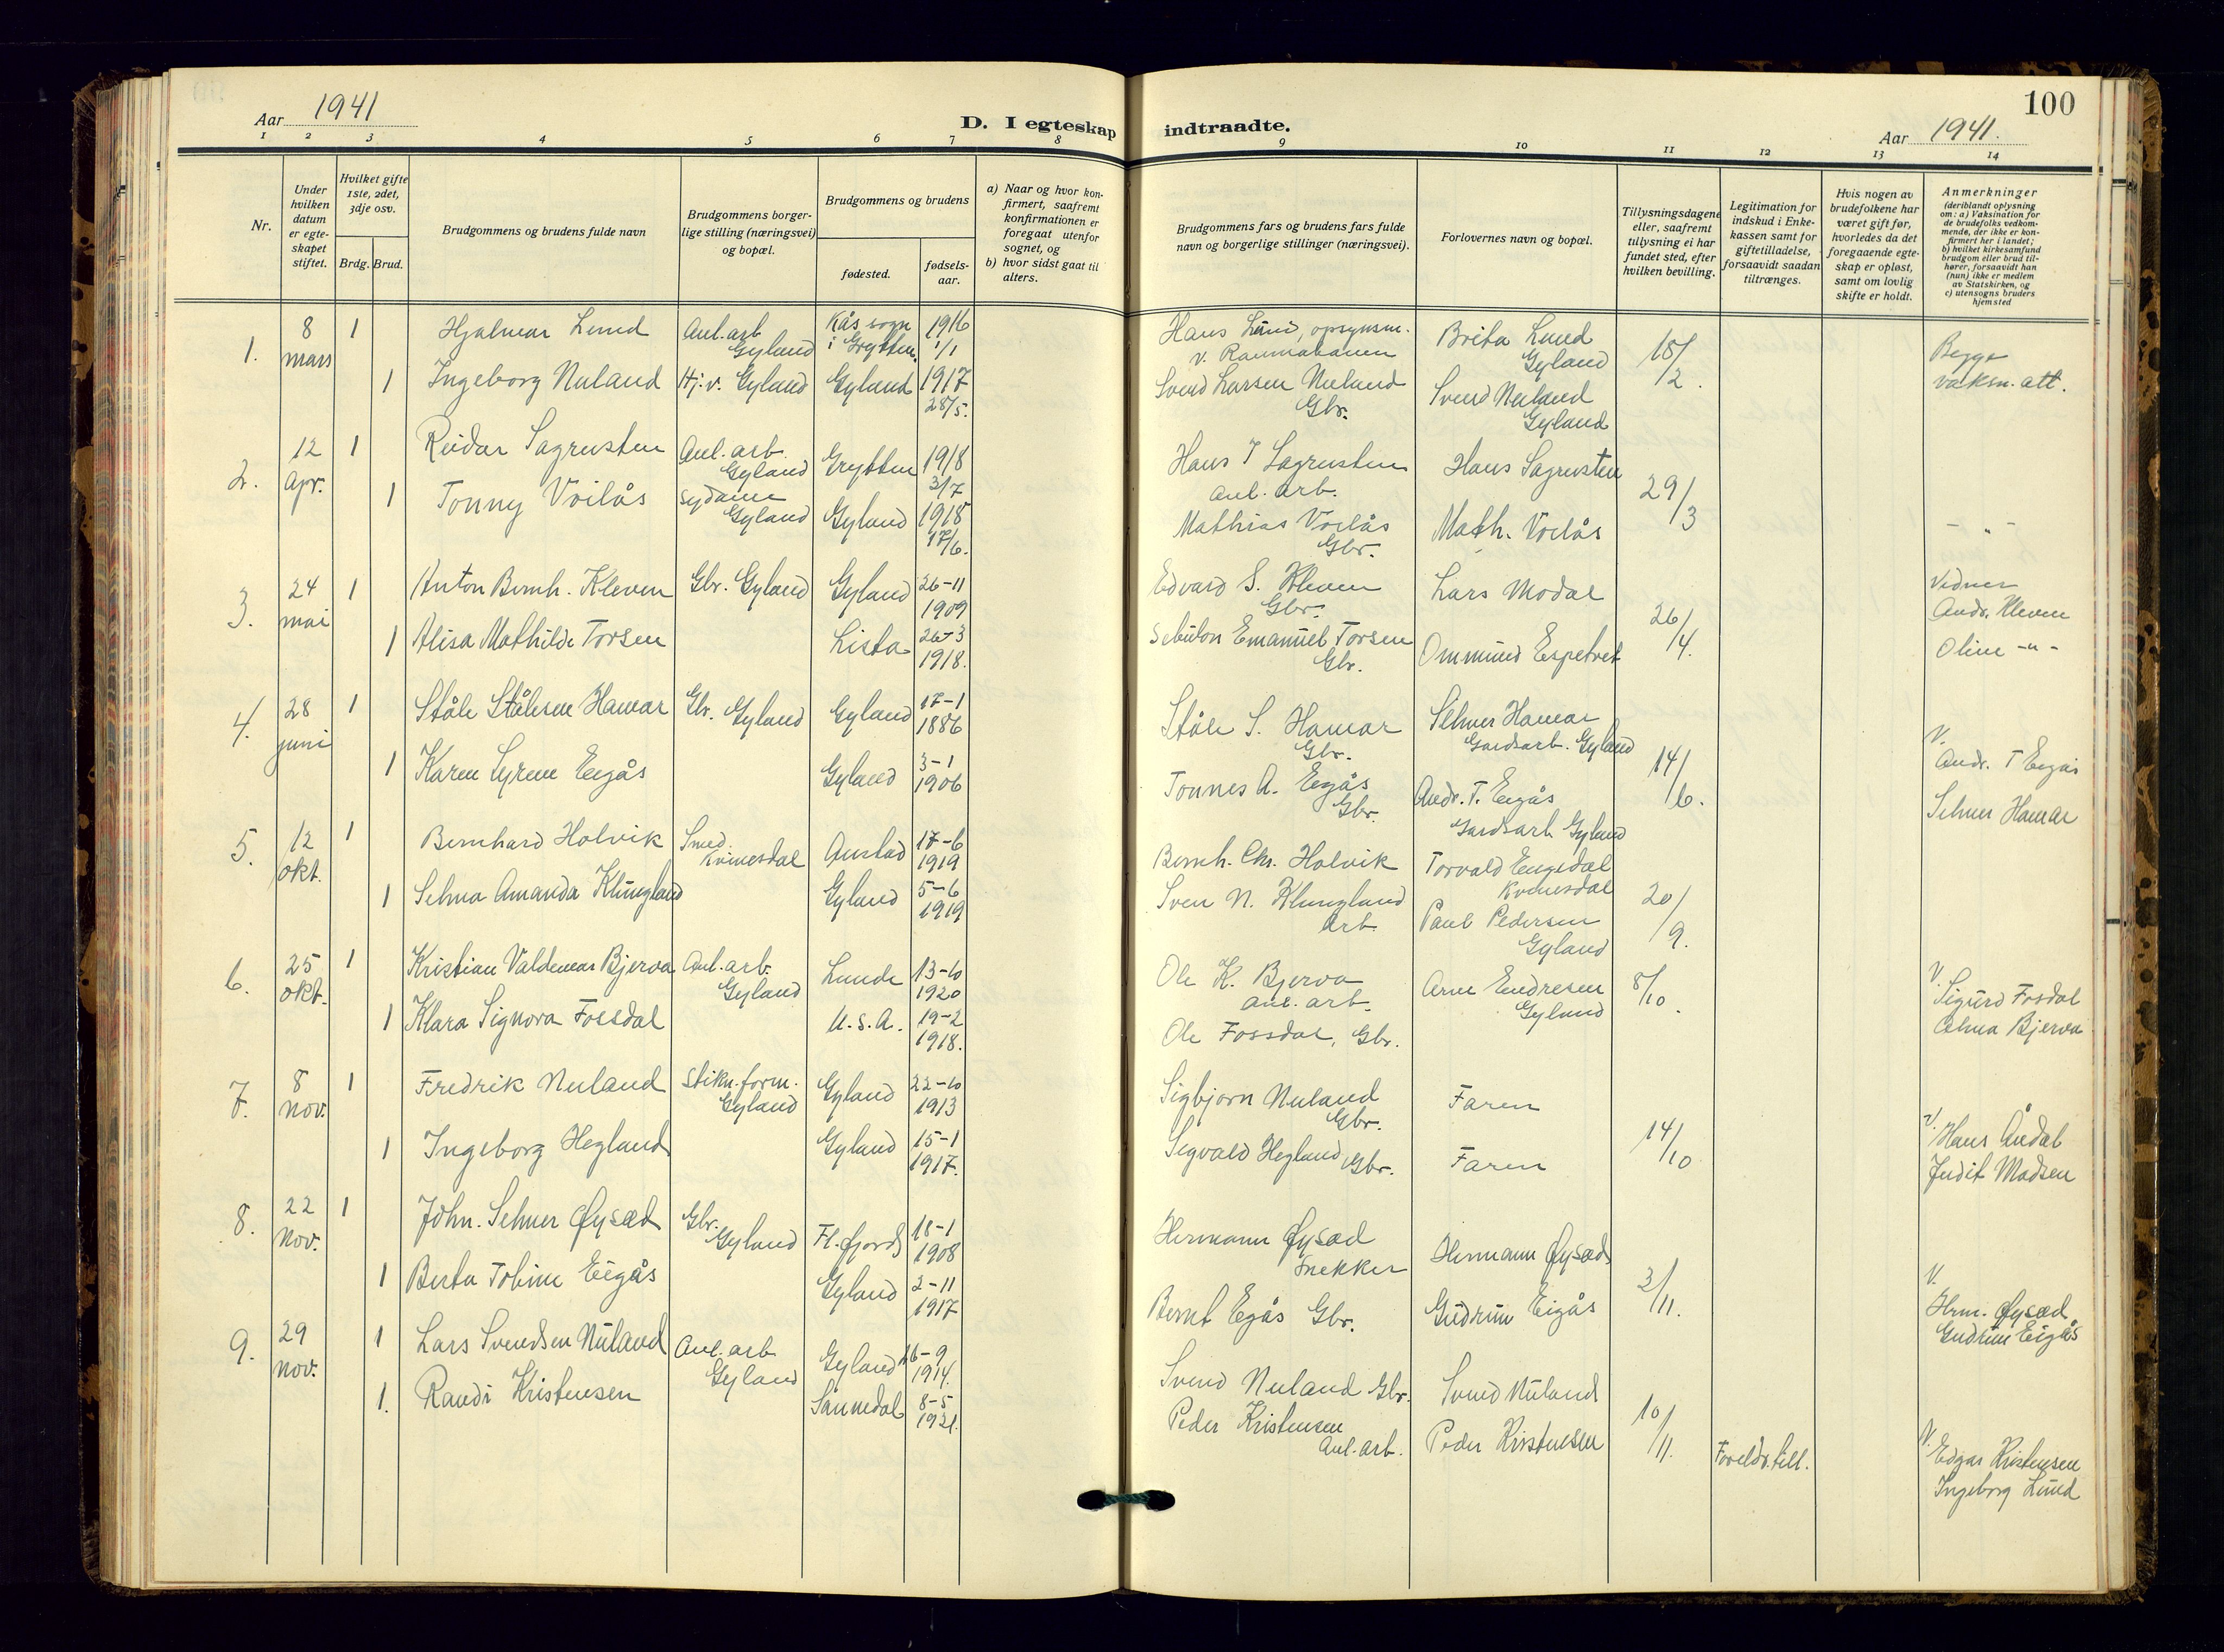 100
Aar 1941
D. I egteskap indtraadte.
Aar 1941.
1 2 3 4 5 6 7 8 9 10 11 12 13 14
Nr.
Under hvilken datum er egteskapet stiftet.
Hvilket gifte 1ste, 2det, 3dje osv.
Brdg. Brud.
Brudgommens og brudens fulde navn
Brudgommens borgerlige stilling (næringsvei) og bopæl.
Brudgommens og brudens
fødested.
fødselsaar.
a) Naar og hvor konfirmert, saafremt konfirmationen er foregaat utenfor sognet, og
b) hvor sidst gaat til alters.
Brudgommens fars og brudens fars fulde navn og borgerlige stillinger (næringsvei).
Forlovernes navn og bopæl.
Tillysningsdagene eller, saafremt tillysning ei har fundet sted, efter hvilken bevilling.
Legitimation for indskud i Enkekassen samt for giftetilladelse, forsaavidt saadan tiltrænges.
Hvis nogen av brudefolkene har været gift før, hvorledes da det foregaaende egteskap er opløst, samt om lovlig skifte er holdt.
Anmerkninger
(deriblandt oplysning om: a) Vaksination for de brudefolks vedkommende, der ikke er konfirmert her i landet; b) hvilket kirkesamfund brudgom eller brud tilhører, forsaavidt han (hun) ikke er medlem av Statskirken, og c) utensogns bruders hjemsted
1. 8 mars 1 Hjalmar Lund Anl.arb. Gyland Kås sogn i Grytten. 1916 1/1 Hans Lund, opsynsm. v. Raumabanen Brita Lund Gyland 18/2. Begge vaksn. att.
1 Ingeborg Nuland Hj.v. Gyland Gyland 1917 28/5. Svend Larsen Nuland Gbr. Svend Nuland Gyland
2. 12 Apr. 1 Reidar Sagrusten Anl. arb. Gyland Grytten 1918 3/7 Hans T Sagrusten anl. arb. Hans Sagrusten 29/3 - " -
1 Tonny Voilås sydame Gyland Gyland 1918 17/6. Mathias Voilås Gbr. Math. Voilås
3. 24 mai 1 Anton Bernh. Kleven Gbr. Gyland Gyland 26-11 1909 Edvard S. Kleven Gbr. Lars Modal 26/4. Vidner Andr. Kleven
1 Alisa Mathilde Torsen Lista 26-3 1918. Sebulon Emanuel Torsen Gbr. Ommund Espetvet Oline -"-
4. 28 juni 1 Ståle Ståhlsen Hamar Gbr. Gyland Gyland 17-1 1886 Ståle S. Hamar Gbr. Selmer Hamar Gardsarb. Gyland 14/6. V. Andr. T Eigås
1 Karen Syrene Eigås Gyland 3-1 1906 Tonnes A. Eigås Gbr. Andr. T. Eigås Gardsarb. Gyland Selmer Hamar
5. 12 okt. 1 Bernhard Holvik Smed. Kvinesdal Austad 17-6 1919 Bernh. Chr. Holvik Torvald Eengsdal Kvinesdal 20/9.
1 Selma Amanda Klungland Gyland 5-6 1919 Sven N. Klungland arb. Paul Pedersen Gyland
6. 25 okt. 1 Kristian Valdemar Bjerva Anl. arb. Gyland Lunde 13-10 1920 Ole K. Bjerva anl. arb. Arne Endresen Gyland 8/10. V. Sigurd Fosdal
1 Klara Signora Fossdal U.S.A. 19-2 1918. Ole Fossdal, Gbr. Alma Bjerva
7. 8 nov. 1 Fredrik Nuland Stikn.form. Gyland Gyland 22-10 1913 Sigbjørn Nuland Gbr. Faren 14/10 V. Hans Ådal
1 Ingeborg Hegland Gyland 15-1 1917. Sigvald Hegland Gbr. Faren Judit Madsen
8. 22 Nov. 1 John. Selmer Øysæd Gbr. Gyland Fl.fjord 18-1 1908 Hermann Øysæd snekker Hermann Øysæd 3/11. V. Hrm. Øysæd
1 Berta Tobine Eigås Gyland 2-11 1917 Bernt Egås Gbr. Gudrun Eigås Gudrun Eigås
9. 29 nov. 1 Lars Svendsen Nuland Anl. arb Gyland Gyland 26-9 1914. Svend Nuland Gbr. Svend Nuland 10/11. Foreldr. till. V. Edgar Kristensen
1. Randi Kristensen Sannedal 8-5 1921. Peder Kristensen Anl. arb. Peder Kristensen Ingeborg Lund